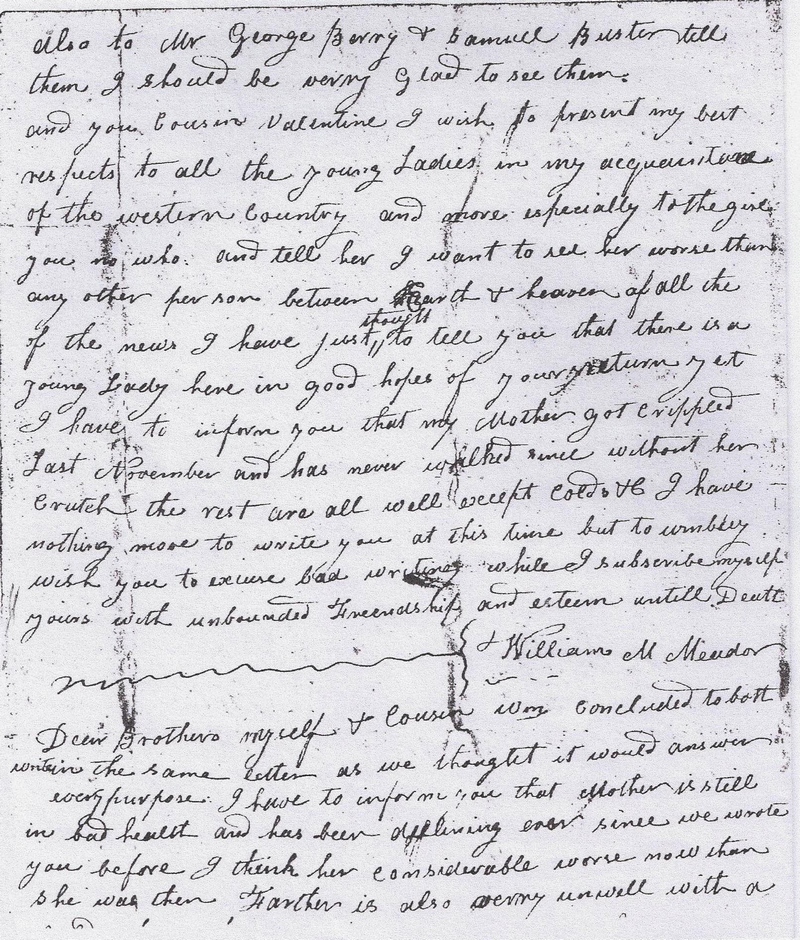 also to Mr George Berry & Samuel Buster tell
them I should be verry Glad to see them.
and you Cousin Valentine I wish to present my best
respects to all the young Ladies in my acquaintance
of the western Country and more especially to the girl
you no who. and tell her I want to see her worse than
any other person between Earth & heaven of all the
thought
of the news I have just to tell you that there is a
young Lady here in good hopes of your return yet
I have to inform you that my Mother got Crippled
Last November and has never walked since without her
Crutch the rest are all well except Colds &C I have
nothing more to write you at this time but to umbley
wish you to excuse bad writing while I subscribe myself
yours with unbounded Freendship and esteem untill Death
William M Meador
Dear Brothers myself & Cousin Wm Concluded to both
write in the same letter as we thought it would answer
every purpose. I have to inform you that Mother is still
in bad health and has been declining ever since we wrote
you before I think her considerable worse now than
she was then Farther is also verry unwell with a